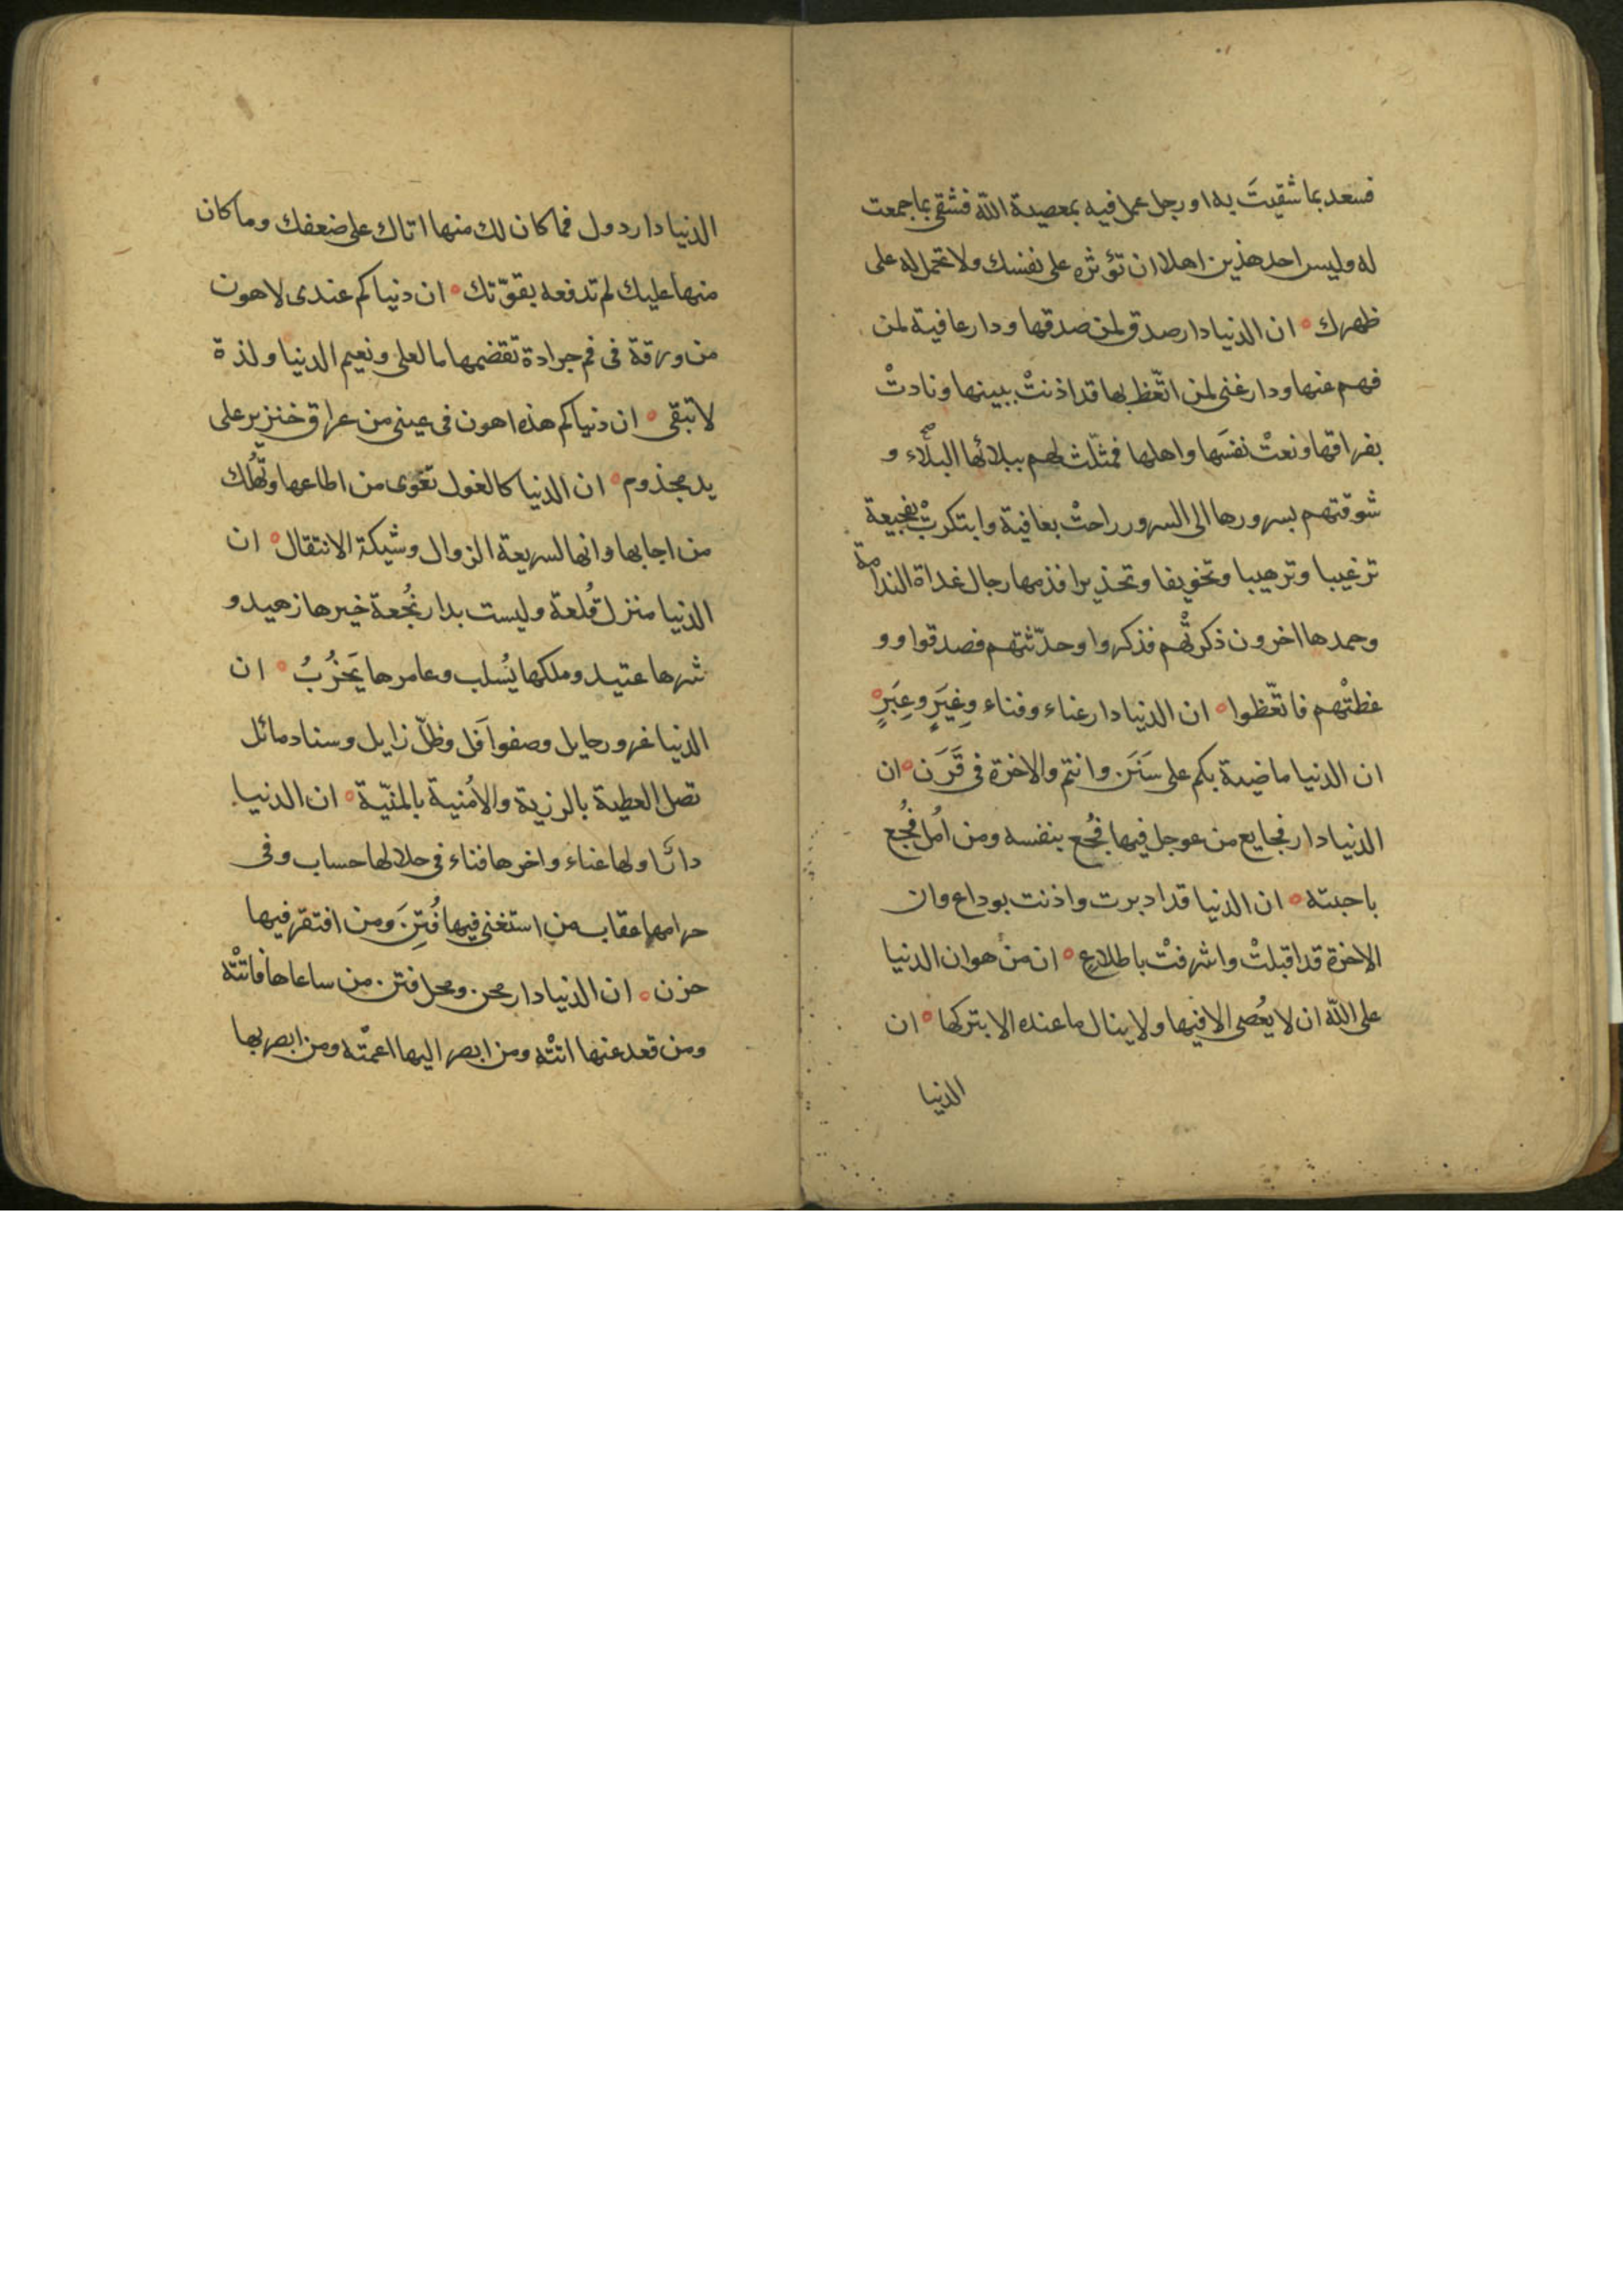 فسعد بما شقيتَ به او رجل عمل فيه بمعصية اللّه فشقى بما جمعت
له وليس احد هذين اهلا ان تؤثره على نفسك ولا تحمل له على
ظهرك ان الدنيا دار صدق لمن صدقها ودار عافية لمن
فهم عنها ودار غنى لمن اتّعظ بها قد اذنتْ ببينها ونادتْ
بفراقها ونعتْ نفسَها واهلها فمثّلت لهم ببلائها البلاء و
شوقتهم بسرورها الى السرور راحتْ بعافية وابتكرتْ بفجيعة
ترغيبا وترهيبا وتخويفا وتحذيرا فذمها رجال غداة الندامة
وحمدها اخرون ذكرتْهم فذكروا وحدّثتهم فصدقوا وو
عظتْهم فاتّعظوا ان الدنيا دار عناء وفناء وغِيَرٍ وعِبَرٍ
ان الدنيا ماضية بكم على سَنَن وانتم والاخرة فى قَرَن ان
الدنيا دار فجايع من عوجل فيها فُجُع بنفسه ومن امُل فُجُع
باحبته ان الدنيا قد ادبرت واذنت بوداع وان
الاخرة قد اقبلتْ واشرفتْ باطلاعٍ ان منْ هوان الدنيا
على اللّه ان لا يعُصى الا فيها ولا ينال ما عنده الا بتركها ان
الدنيا
الدنيا دار دول فما كان لك منها اتاك على ضعفك وما كان
منها عليك لم تدفعه بقوّتك ان دنياكم عندى لاهون
من ورقة فى فم جرادة تقضمها ما لعلى ونعيم الدنيا ولذة
لا تبقى ان دنياكم هذه اهون فى عينى من عراق خنزير على
يد مجذوم ان الدنيا كالغول تغوى من اطاعها وتُهلك
من اجابها وانها لسريعة الزوال وشيكة الانتقال ان
الدنيا منزل قُلعة وليست بدار نُجعة خيرها زهيد و
شرها عتيد وملكها يُسلب وعامرها يَخرُبُ ان
الدنيا غرور حايل وصفو اَفل وظلّ زايل وسناد مائل
تصل العطية بالرزية والاُمنية بالمنيّة ان الدنيا
دار اولها عناء واخرها فناء فى حلالها حساب وفى
حرامها عقاب من استغنى فيها فُتِنَ ومن افتقر فيها
حزن ان الدنيا دار محن ومحل فتن من ساعاها فاتتْه
ومن قعد عنها اتتْه ومن ابصر اليها اعمتْه ومن ابصر بها